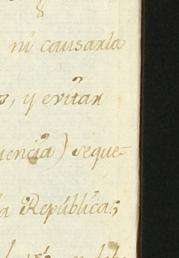 8
ni causarla
, y evitar
uencia) seque-
la Republica;